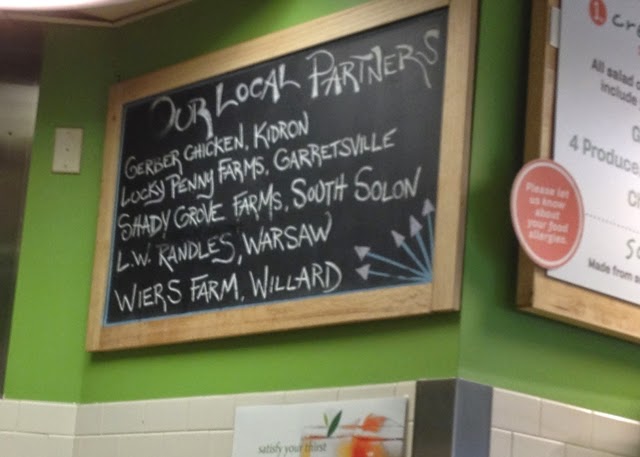 Our Local Partners
Gerber Chicken, Kidron
Lucky Penny Farms, Garretsville
Shady Grove Farms, South Solon
L.W. Randles, Warsaw
Wiers Farm, Willard
1
cre
All salad
include
4 Produce
Please let
us know
about
your food
allergies.
Made from
satisfy your thirst